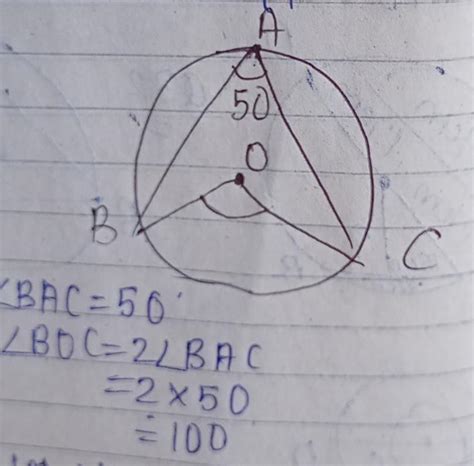 A
50
O
B
C
∠BAC=50°
∠BOC=2∠BAC
=2×50
=100